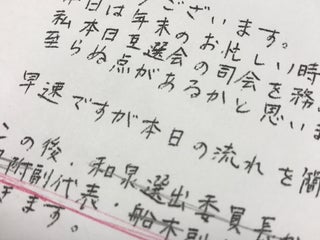 ございます。
本日は年末のお忙しい時
私本日互選会の司会を務い
至らぬ点があるかと思いま
早速ですが本日の流れを簡
この後・和泉選出委員長か
附副代表・船木副
きます。